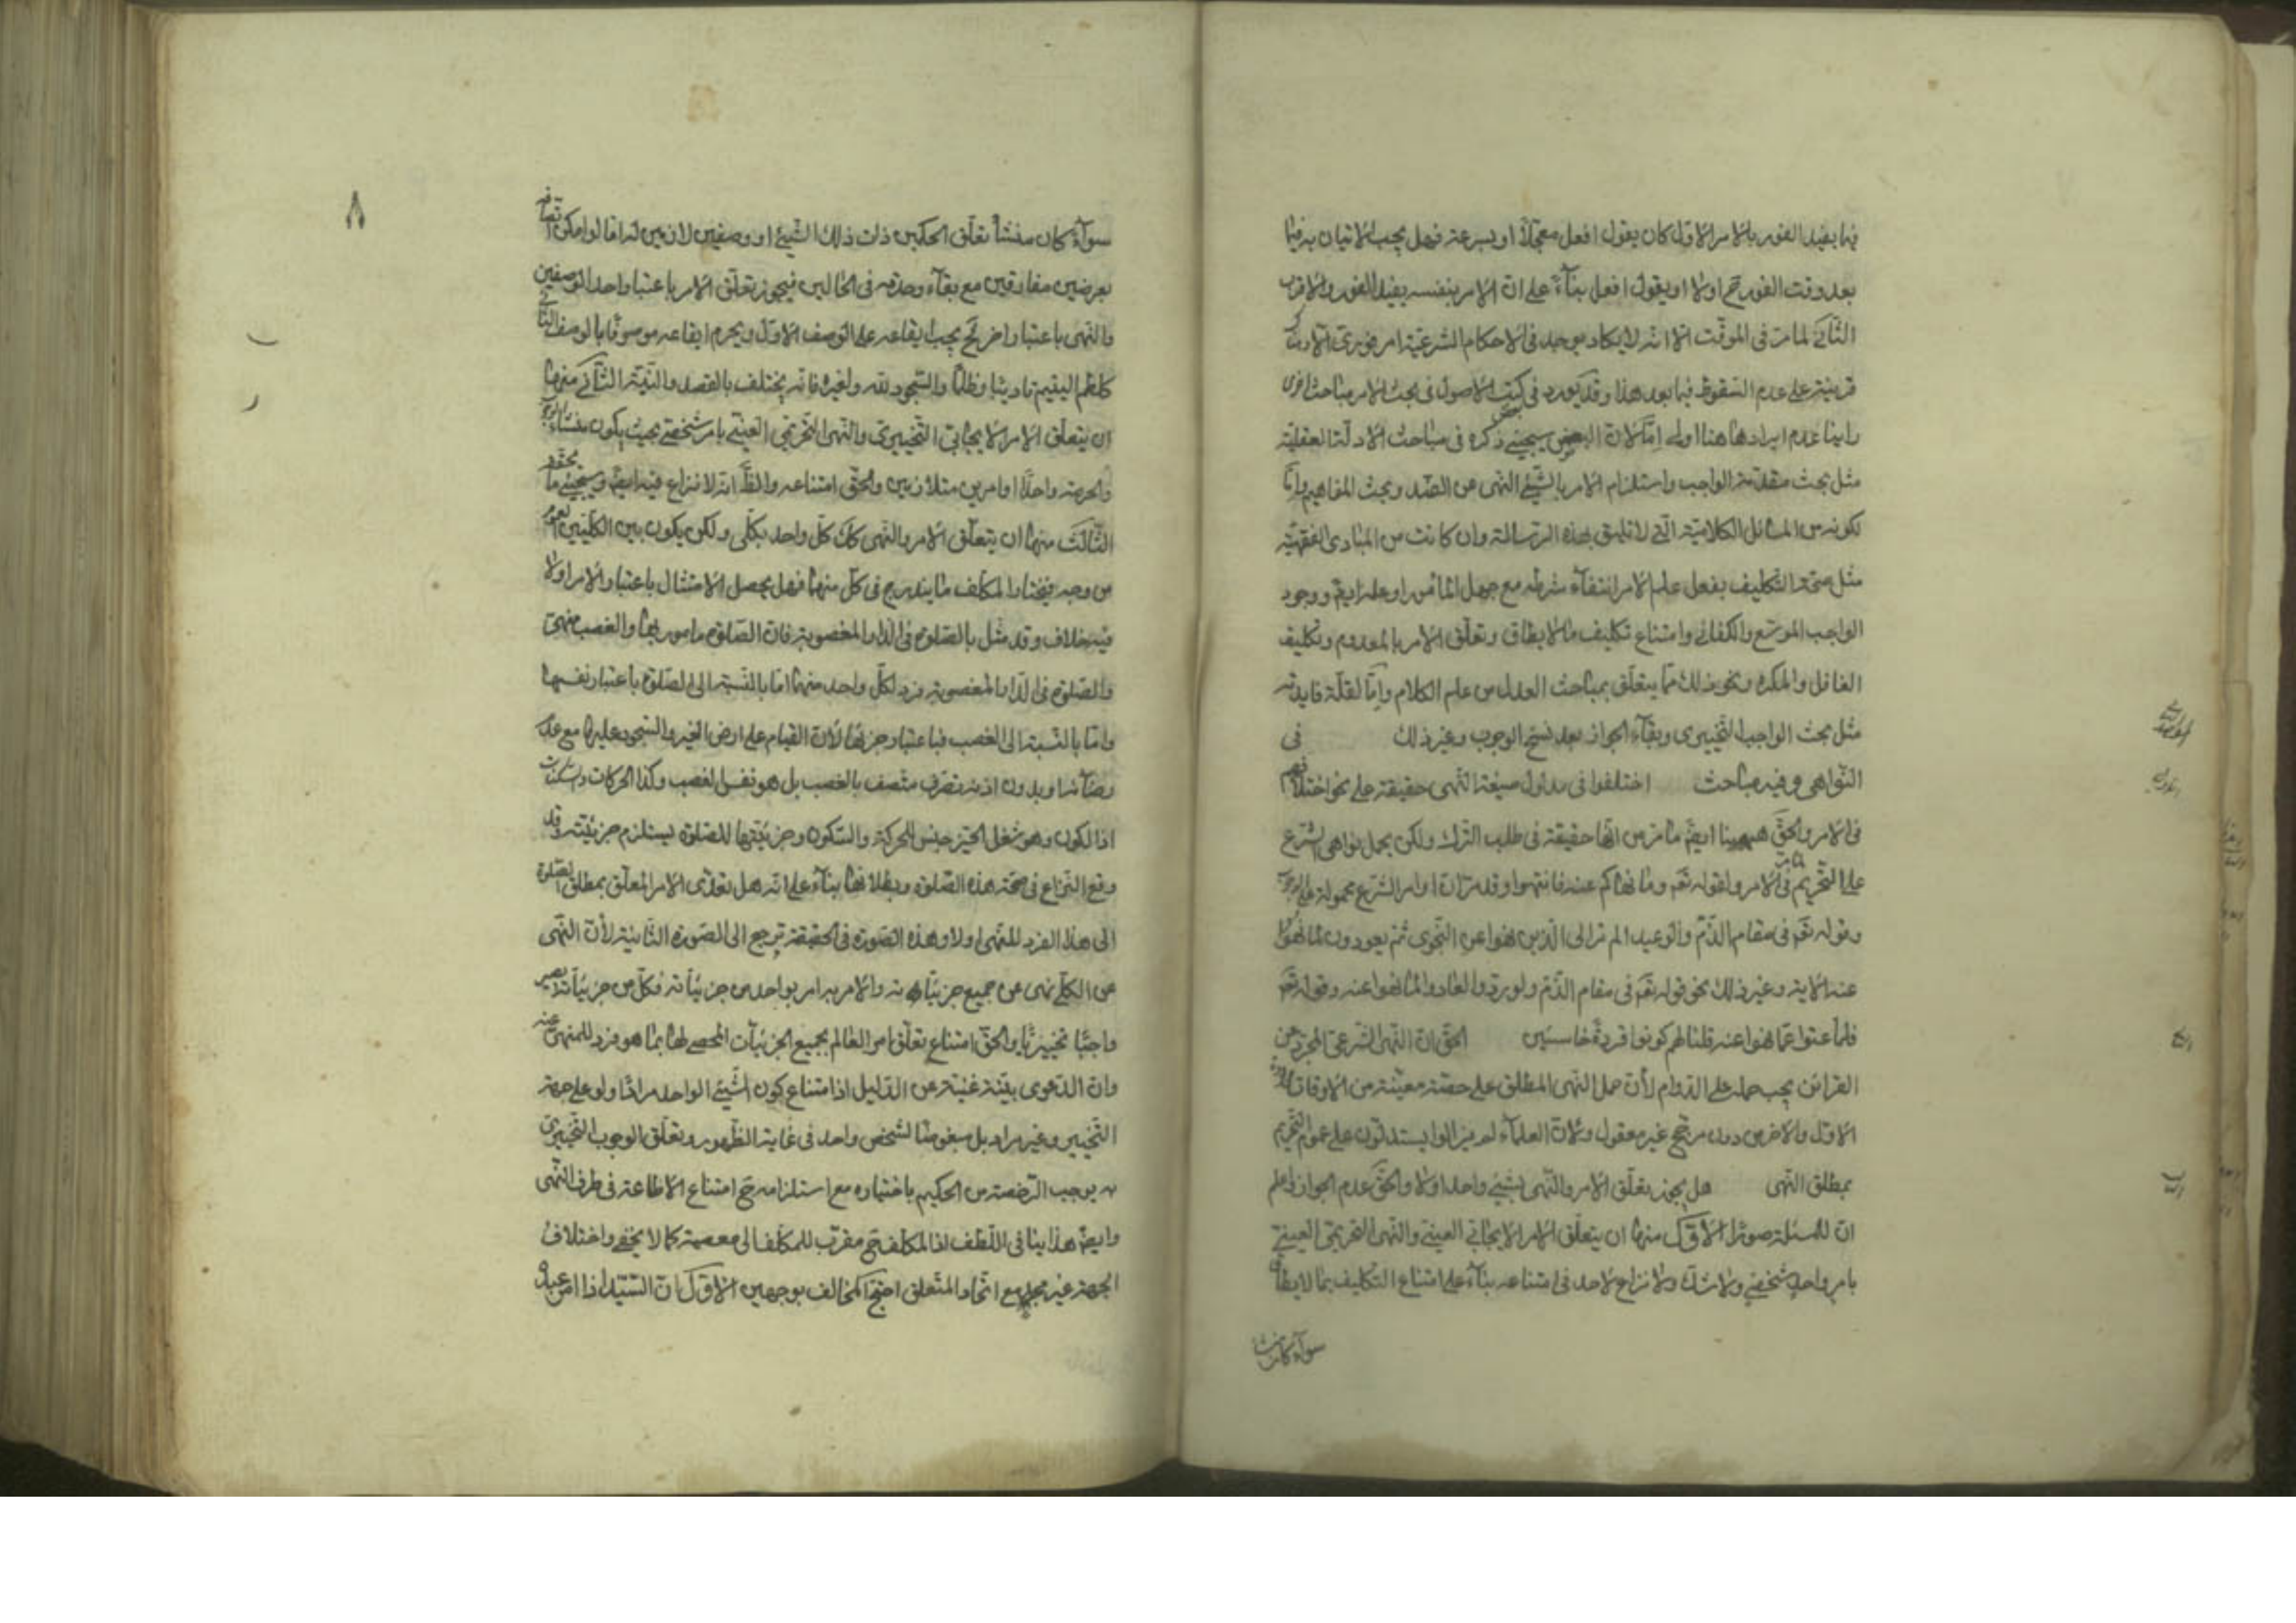 فيما يفيد الفور بالامر الاول كان يقول افعل معجلا او بسرعة فهل يجب الاتيان به فيما
بعد وقت الفور ح اولا او يقول افعل بناء على ان الامر بنفسه يفيد الفور والاقرب
الثاني لما مر في الموقت الا انه لا يكاد يوجد في الاحكام الشرعية امر فوري الا وثمة
قرينة على عدم السقوط فيما بعد هذا وقد يورد في كتب الاصول في بحث الامر مباحث اخرى
راينا عدم ايرادها هنا اولى اما لان البعض سيجيئ ذكره في مباحث الادلة العقلية
مثل بحث مقدمة الواجب واستلزام الامر بالشيئ النهى عن الضد وبحث المفاهيم واما
لكونه من المسائل الكلامية التي لا تليق بهذه الرسالة وان كانت من المبادى الفقهية
مثل صحة التكليف بفعل علم الامر انتفاء شرطه مع جهل المامور او علمه ايضا ووجود
الواجب الموسع والكفائي وامتناع تكليف ما لا يطاق وتعلق الامر بالمعدوم وتكليف
الغافل والمكره ونحو ذلك مما يتعلق بمباحث العدل من علم الكلام واما لقلة فايدته
مثل بحث الواجب التخييرى وبقاء الجواز بعد نسخ الوجوب وغير ذلك في
النواهى وفيه مباحث اختلفوا في مدلول صيغة النهى حقيقة على نحو اختلافهم
في الامر والحق ههنا ايضا ما مر من انها حقيقة في طلب الترك ولكن يحمل نواهى الشرع
على التحريم لما مر في الامر ولقوله تعم وما نهاكم عنه فانتهوا وقد مر ان اوامر الشرع محمولة على الوجوب
وقوله تعم في مقام الذم والوعيد الم تر الى الذين نهوا عن النجوى ثم يعودون لما نهوا
عنه الاية وغير ذلك نحو قوله تعم في مقام الذم ولو ردوا لعادوا لما نهوا عنه وقوله تعم
فلما عتوا عما نهوا عنه قلنا لهم كونوا قردة خاسئين الحق ان النهى الشرعى المجرد عن
القرائن يجب حمله على الدوام لان حمل النهى المطلق على حصة معينة من الاوقات
الاول والاخر من دون مرجح غير معقول ولان العلماء لم يزالوا يستدلون على عموم التحريم
بمطلق النهى هل يجوز تعلق الامر والنهى بشيئ واحد اولا والحق عدم الجواز واعلم
ان للمسئلة صورا الاول منها ان يتعلق الامر الايجابي العيني والنهى التحريمي العيني
بامر واحد شخصي ولا شك ولا نزاع لاحد في امتناعه بناء على امتناع التكليف بما لا يطاق
سواء كان منشا
٨
سواء كان منشأ تعلق الحكمين ذات ذلك الشيئ او وصفين لازمين له اما لو امكن اتصافه
بعرضين مفارقين مع بقاء وحدته في الحالين فيجوز تعلق الامر باعتبار احد الوصفين
والنهى باعتبار اخر فح يجب ايقاعه على الوصف الاول ويحرم ايقاعه موصوفا بالوصف الثاني
كلطم اليتيم تاديبا وظلما والسجود لله ولغيره فانه يختلف بالقصد والنية الثاني منها
ان يتعلق الامر الايجابي التخييري والنهى التحريمي العيني بامر شخصي بحيث يكون منشاء الوجوب
والحرمة واحدا او امرين متلازمين والحق امتناعه والظ انه لا نزاع فيه ايضا وسيجيئ ما يحققه
الثالث منها ان يتعلق الامر والنهى كك كل واحد بكلى ولكن يكون بين الكليين عموم
من وجه فيختار المكلف ما يندرج في كل منهما فهل يحصل الامتثال باعتبار الامر اولا
فيه خلاف وقد مثل بالصلوة في الدار المغصوبة فان الصلوة مامور بها والغصب منهى
والصلوة في الدار المغصوبة فرد لكل واحد منهما اما بالنسبة الى الصلوة باعتبار نفسها
واما بالنسبة الى الغصب فباعتبار جزئها لان القيام على ارض الغير والسجود عليها مع عدم
رضائه او بدون اذنه تصرف متصف بالغصب بل هو نفس الغصب وكذا الحركات والسكنات
اذ الكون وهو شغل الحيز جنس للحركة والسكون وجزئيتها للصلوة يستلزم جزئيته وقد
وقع النزاع في صحة هذه الصلوة وبطلانها بناء على انه هل تعدى الامر المعلق بمطلق الصلوة
الى هذا الفرد المنهى اولا وهذه الصورة في الحقيقة ترجع الى الصورة الثانية لان النهى
عن الكلي نهى عن جميع جزئياته والامر به امر بواحد من جزئياته فكل من جزئياته يصير
واجبا تخييريا والحق امتناع تعلق امر العالم بجميع الجزئيات المحصى لها بما هو فرد للمنهى عنه
وان الدعوى بينة غنية عن الدليل اذ امتناع كون الشيئ الواحد مرادا ولو على جهة
التخيير وغير مراد بل مبغوضا لشخص واحد في غاية الظهور وتعلق الوجوب التخييرى
به يوجب الرخصة من الحكيم باختياره مع استلزامه ح امتناع الاطاعة في طرف النهى
وايضا هذا ينافى اللطف اذ المكلف ح مقرب للمكلف الى معصيته كما لا يخفى واختلاف
الجهة غير مجد مع اتحاد المتعلق احتج المخالف بوجهين الاول ان السيد اذا امر عبده